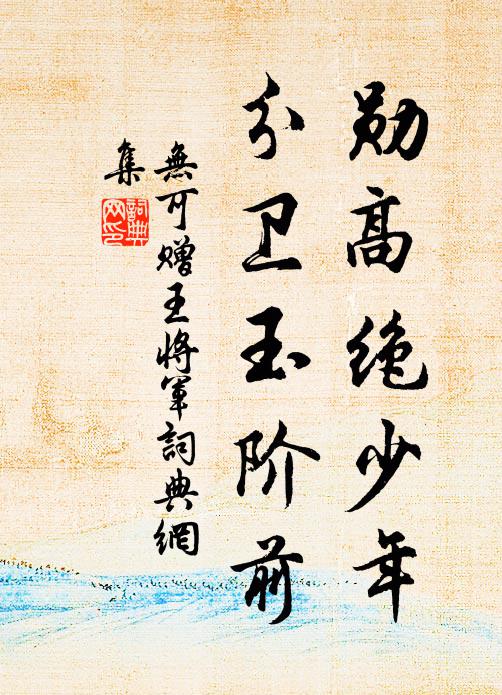 勋高绝少年
分卫玉阶前
無可赠王将軍詞典網
集
詞典
网印